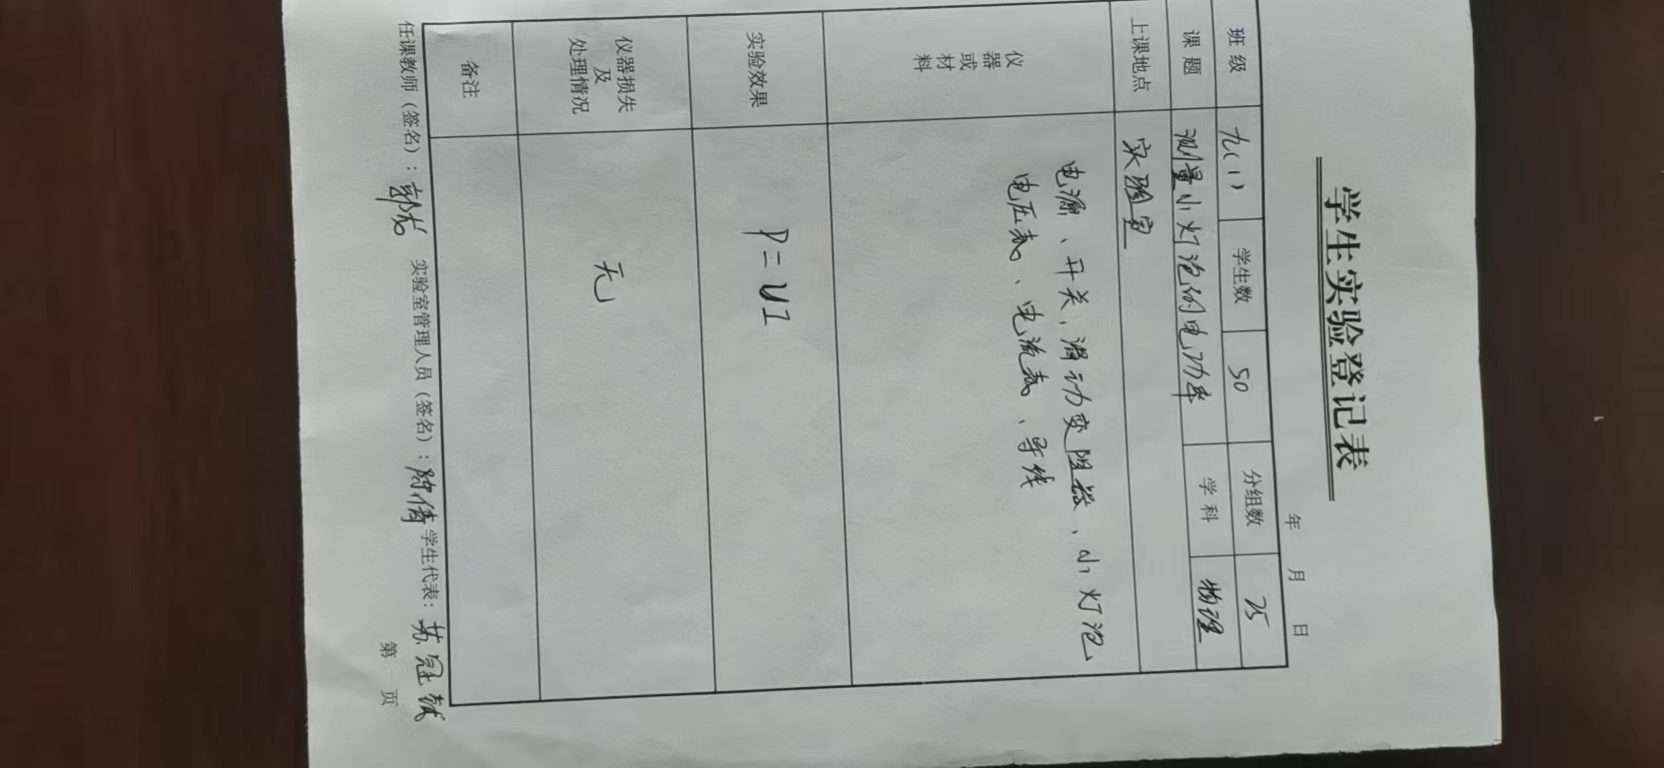 学生实验登记表
年 月 日
班 级 九(1) 学生数 50 分组数 25
课 题 测量小灯泡的电功率 学 科 物理
上课地点 实验室
仪器或材料 电源、开关、滑动变阻器、小灯泡
电压表、电流表、导线
实验效果 P=UI
仪器损失及处理情况 无
备注
任课教师(签名): 实验室管理人员(签名): 陈倩 学生代表: 苏冠
第 页